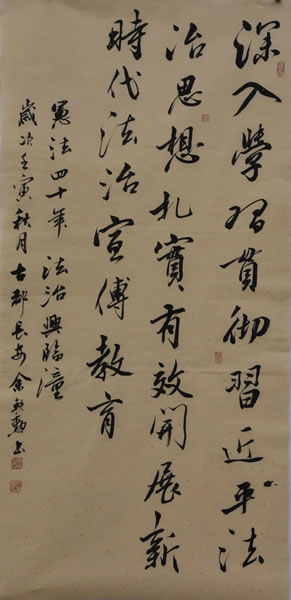 深入學習貫彻習近平法
治思想扎實有效開展新
時代法治宣傳教育
憲法四十年 法治興臨潼
歲次壬寅秋月古都長安余